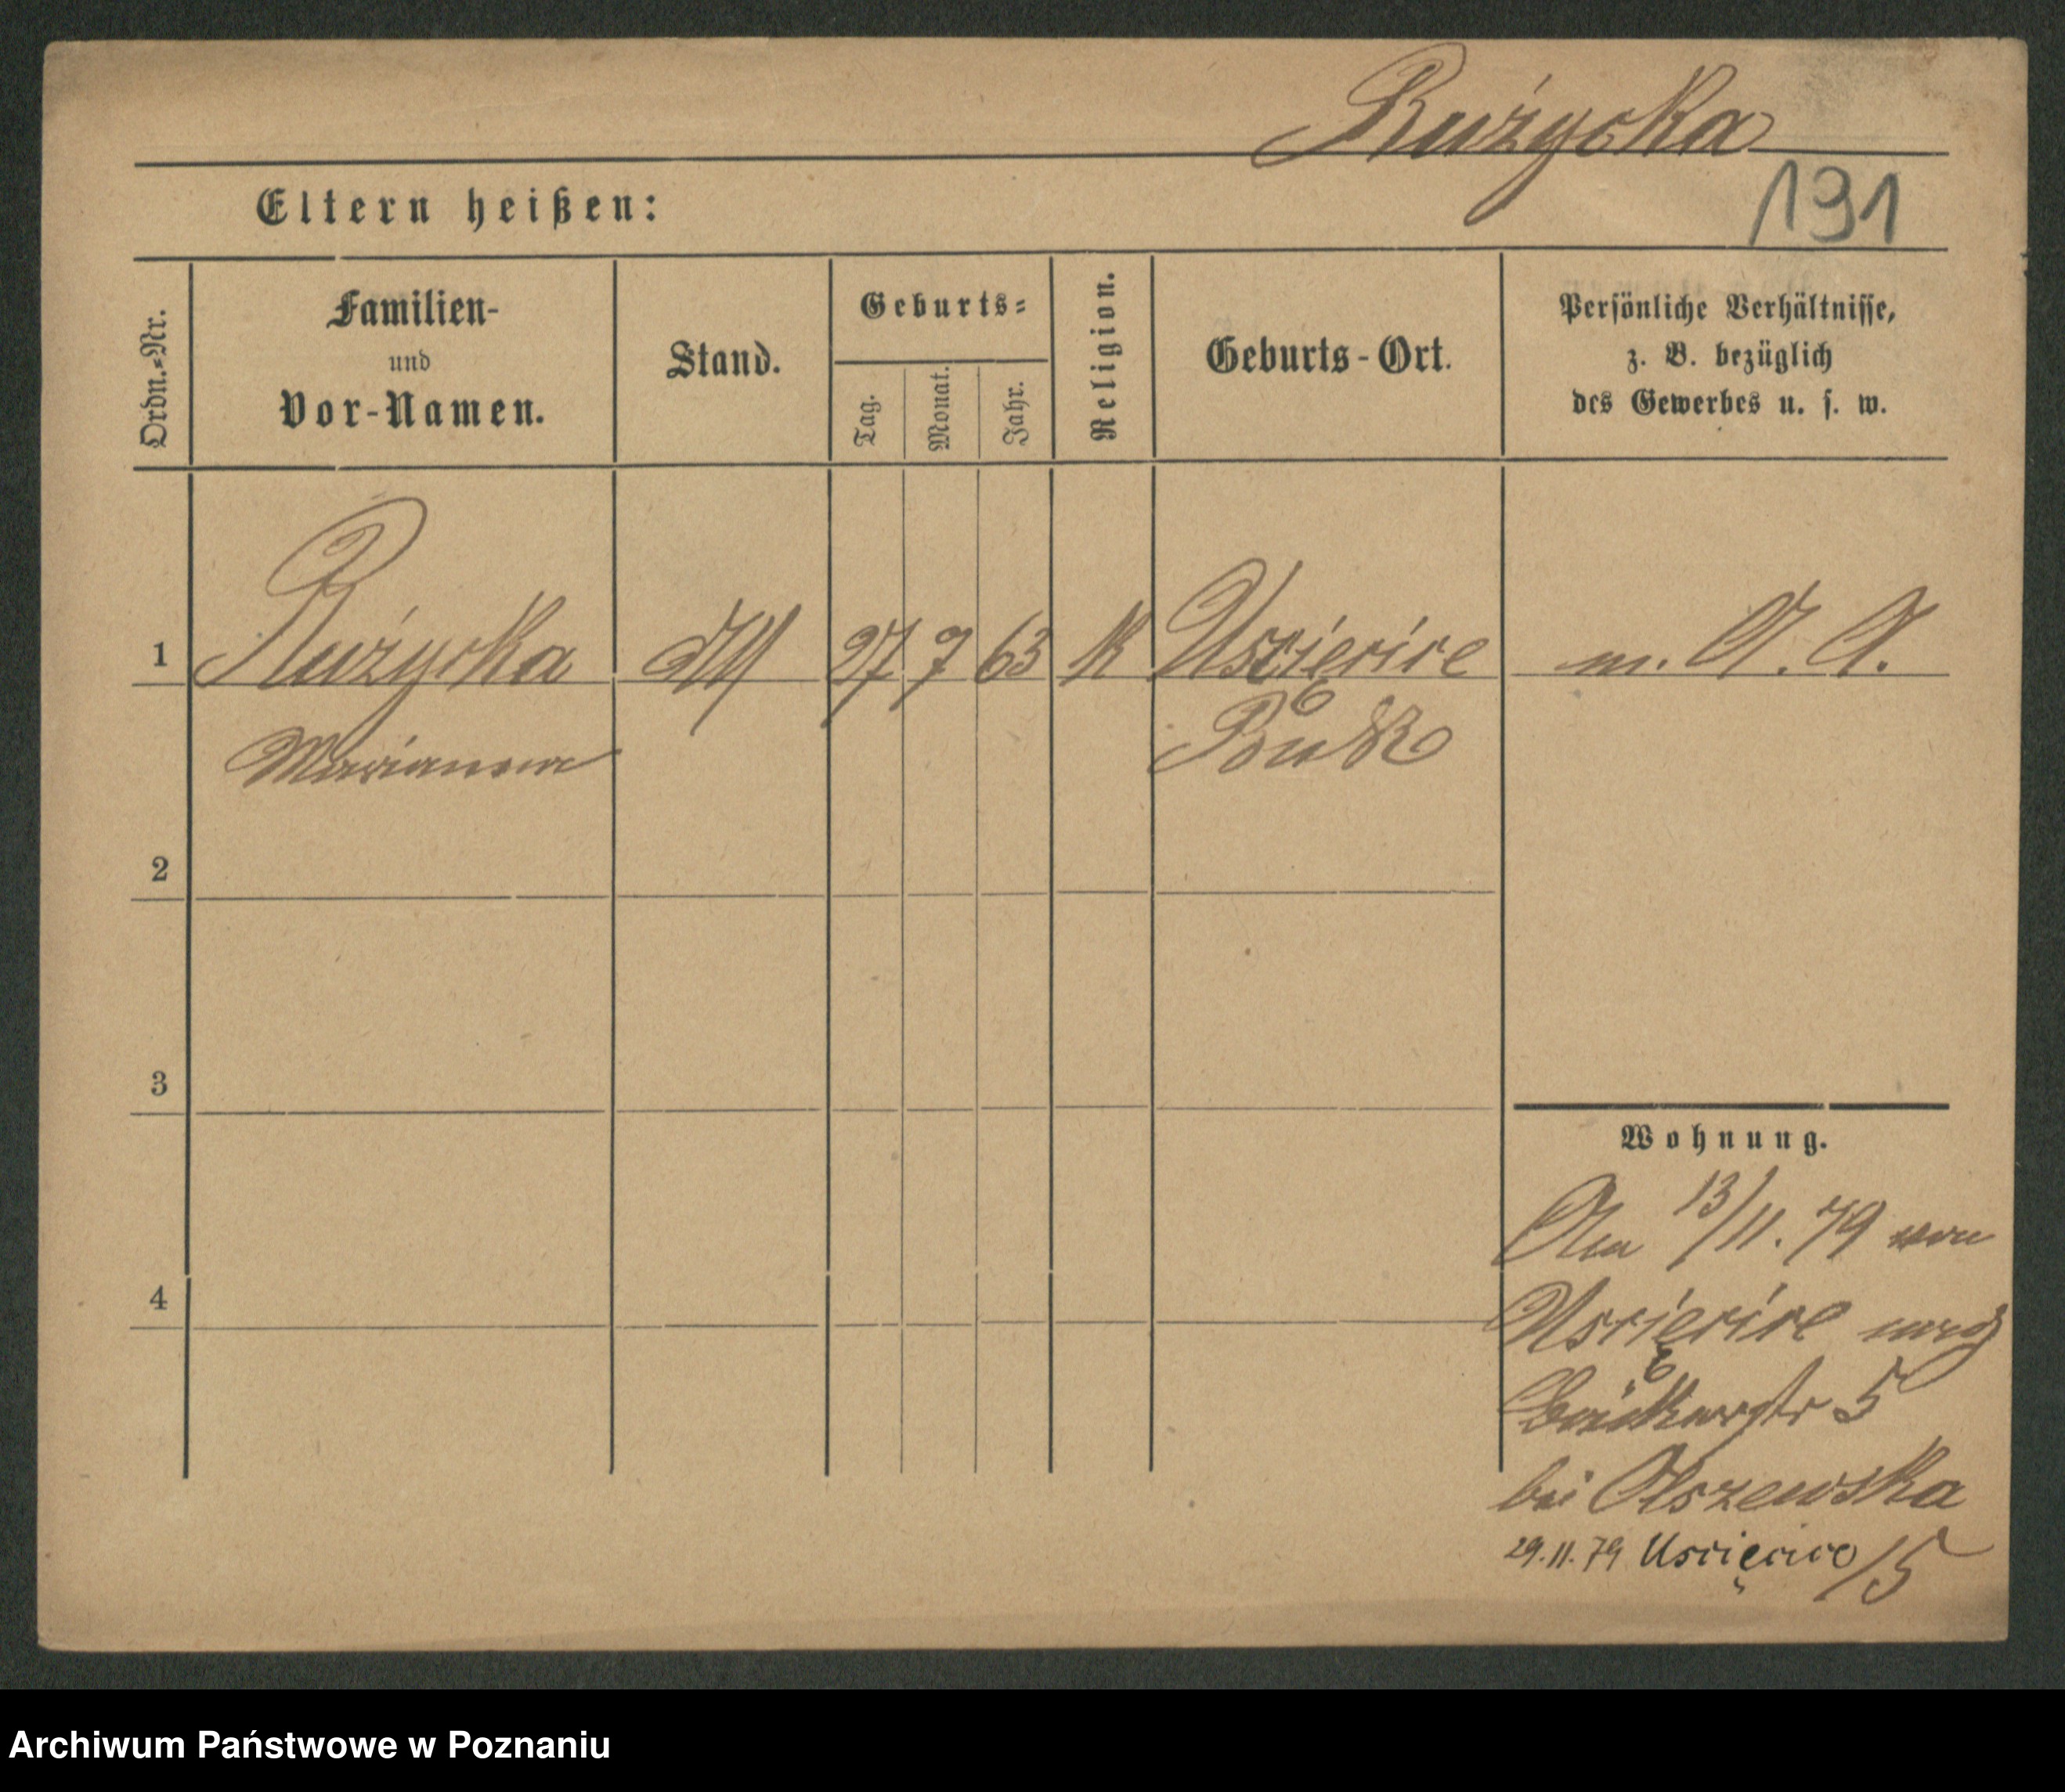 Rużycka
191
Eltern heißen:
Ordn.-Nr.
Familien-
und
Vor-Namen.
Stand.
Geburts-
Tag.
Monat.
Jahr.
Religion.
Geburts-Ort.
Persönliche Verhältnisse,
z. B. bezüglich
des Gewerbes u. s. w.
1 Rużycka 27 7 63 K Uścięcice m. A. A.
Marianna Buk
2
3
4
Wohnung.
Am 13/11. 79 von
Uścięcice nach
5
bei Olszewska
29.11.79 Uścięcice /5
Archiwum Państwowe w Poznaniu